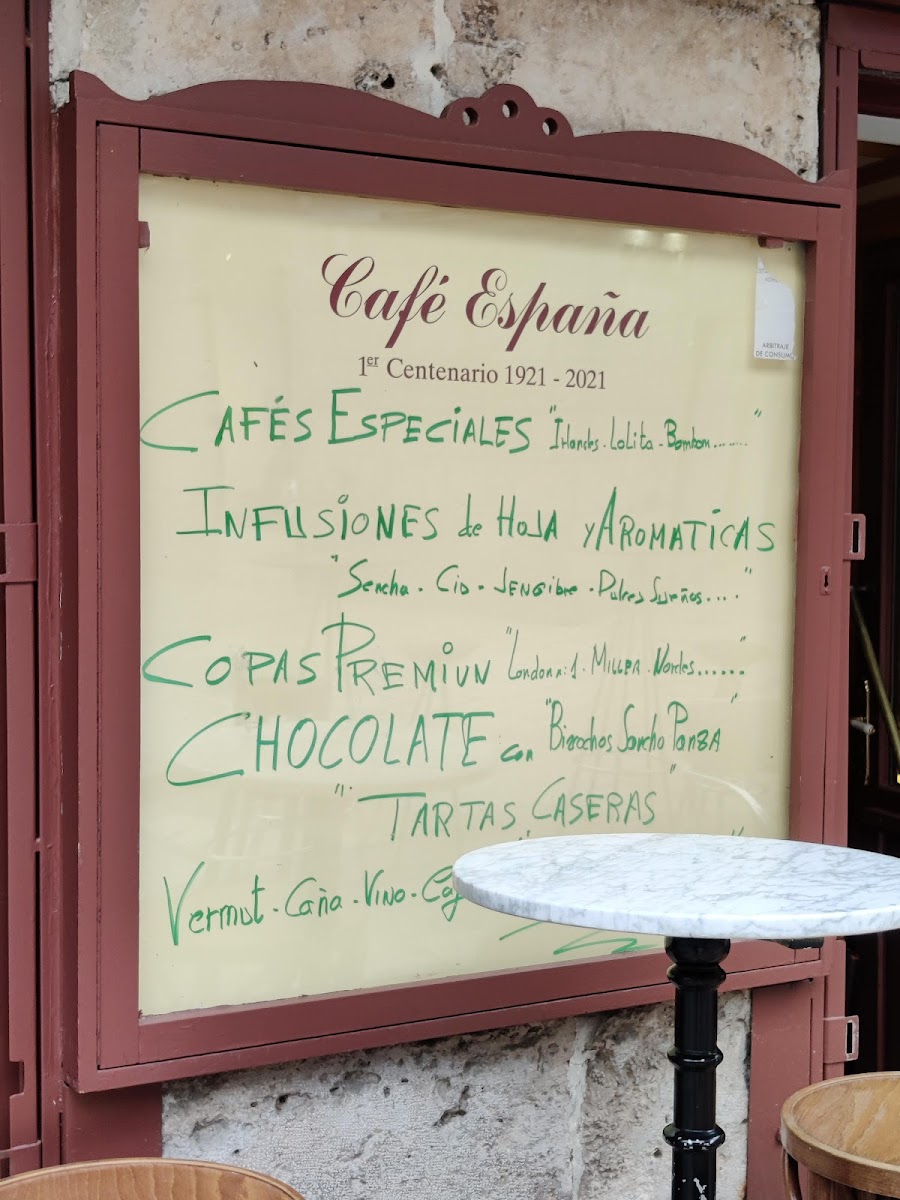 Café España
1er Centenario 1921 - 2021
ARBITRAJE
DE CONSUMO
CAFÉS ESPECIALES "Irlandes . Lolita . Bombom ........"
INFUSIONES de HOJA y AROMATICAS
"Sencha . Cid . JENGibre . Dulces Sueños...."
COPAS PREMIUN "London n:1 . MILLER . Nordes......"
CHOCOLATE con "Bizcochos Sancho PanzA"
"TARTAS CASERAS"
Vermut . Caña . Vino .